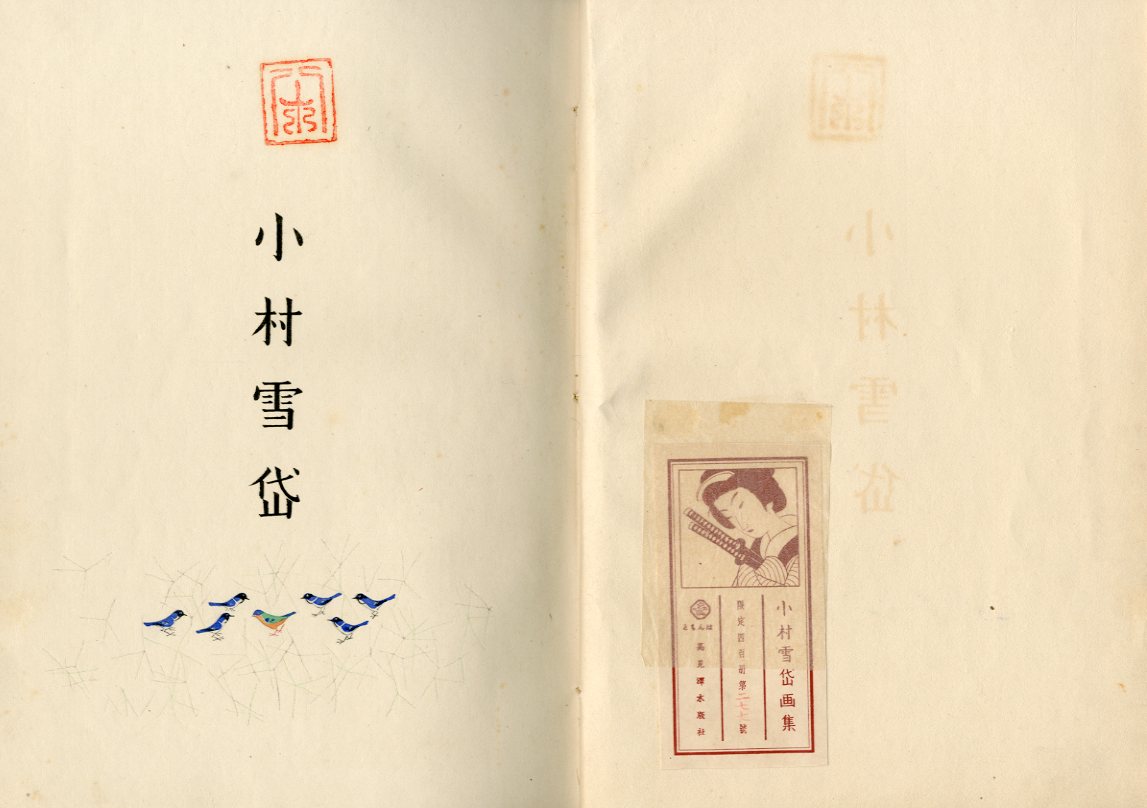 小村雪岱
小村雪岱画集
限定四百部第二七七號
はんもと
高見澤木版社